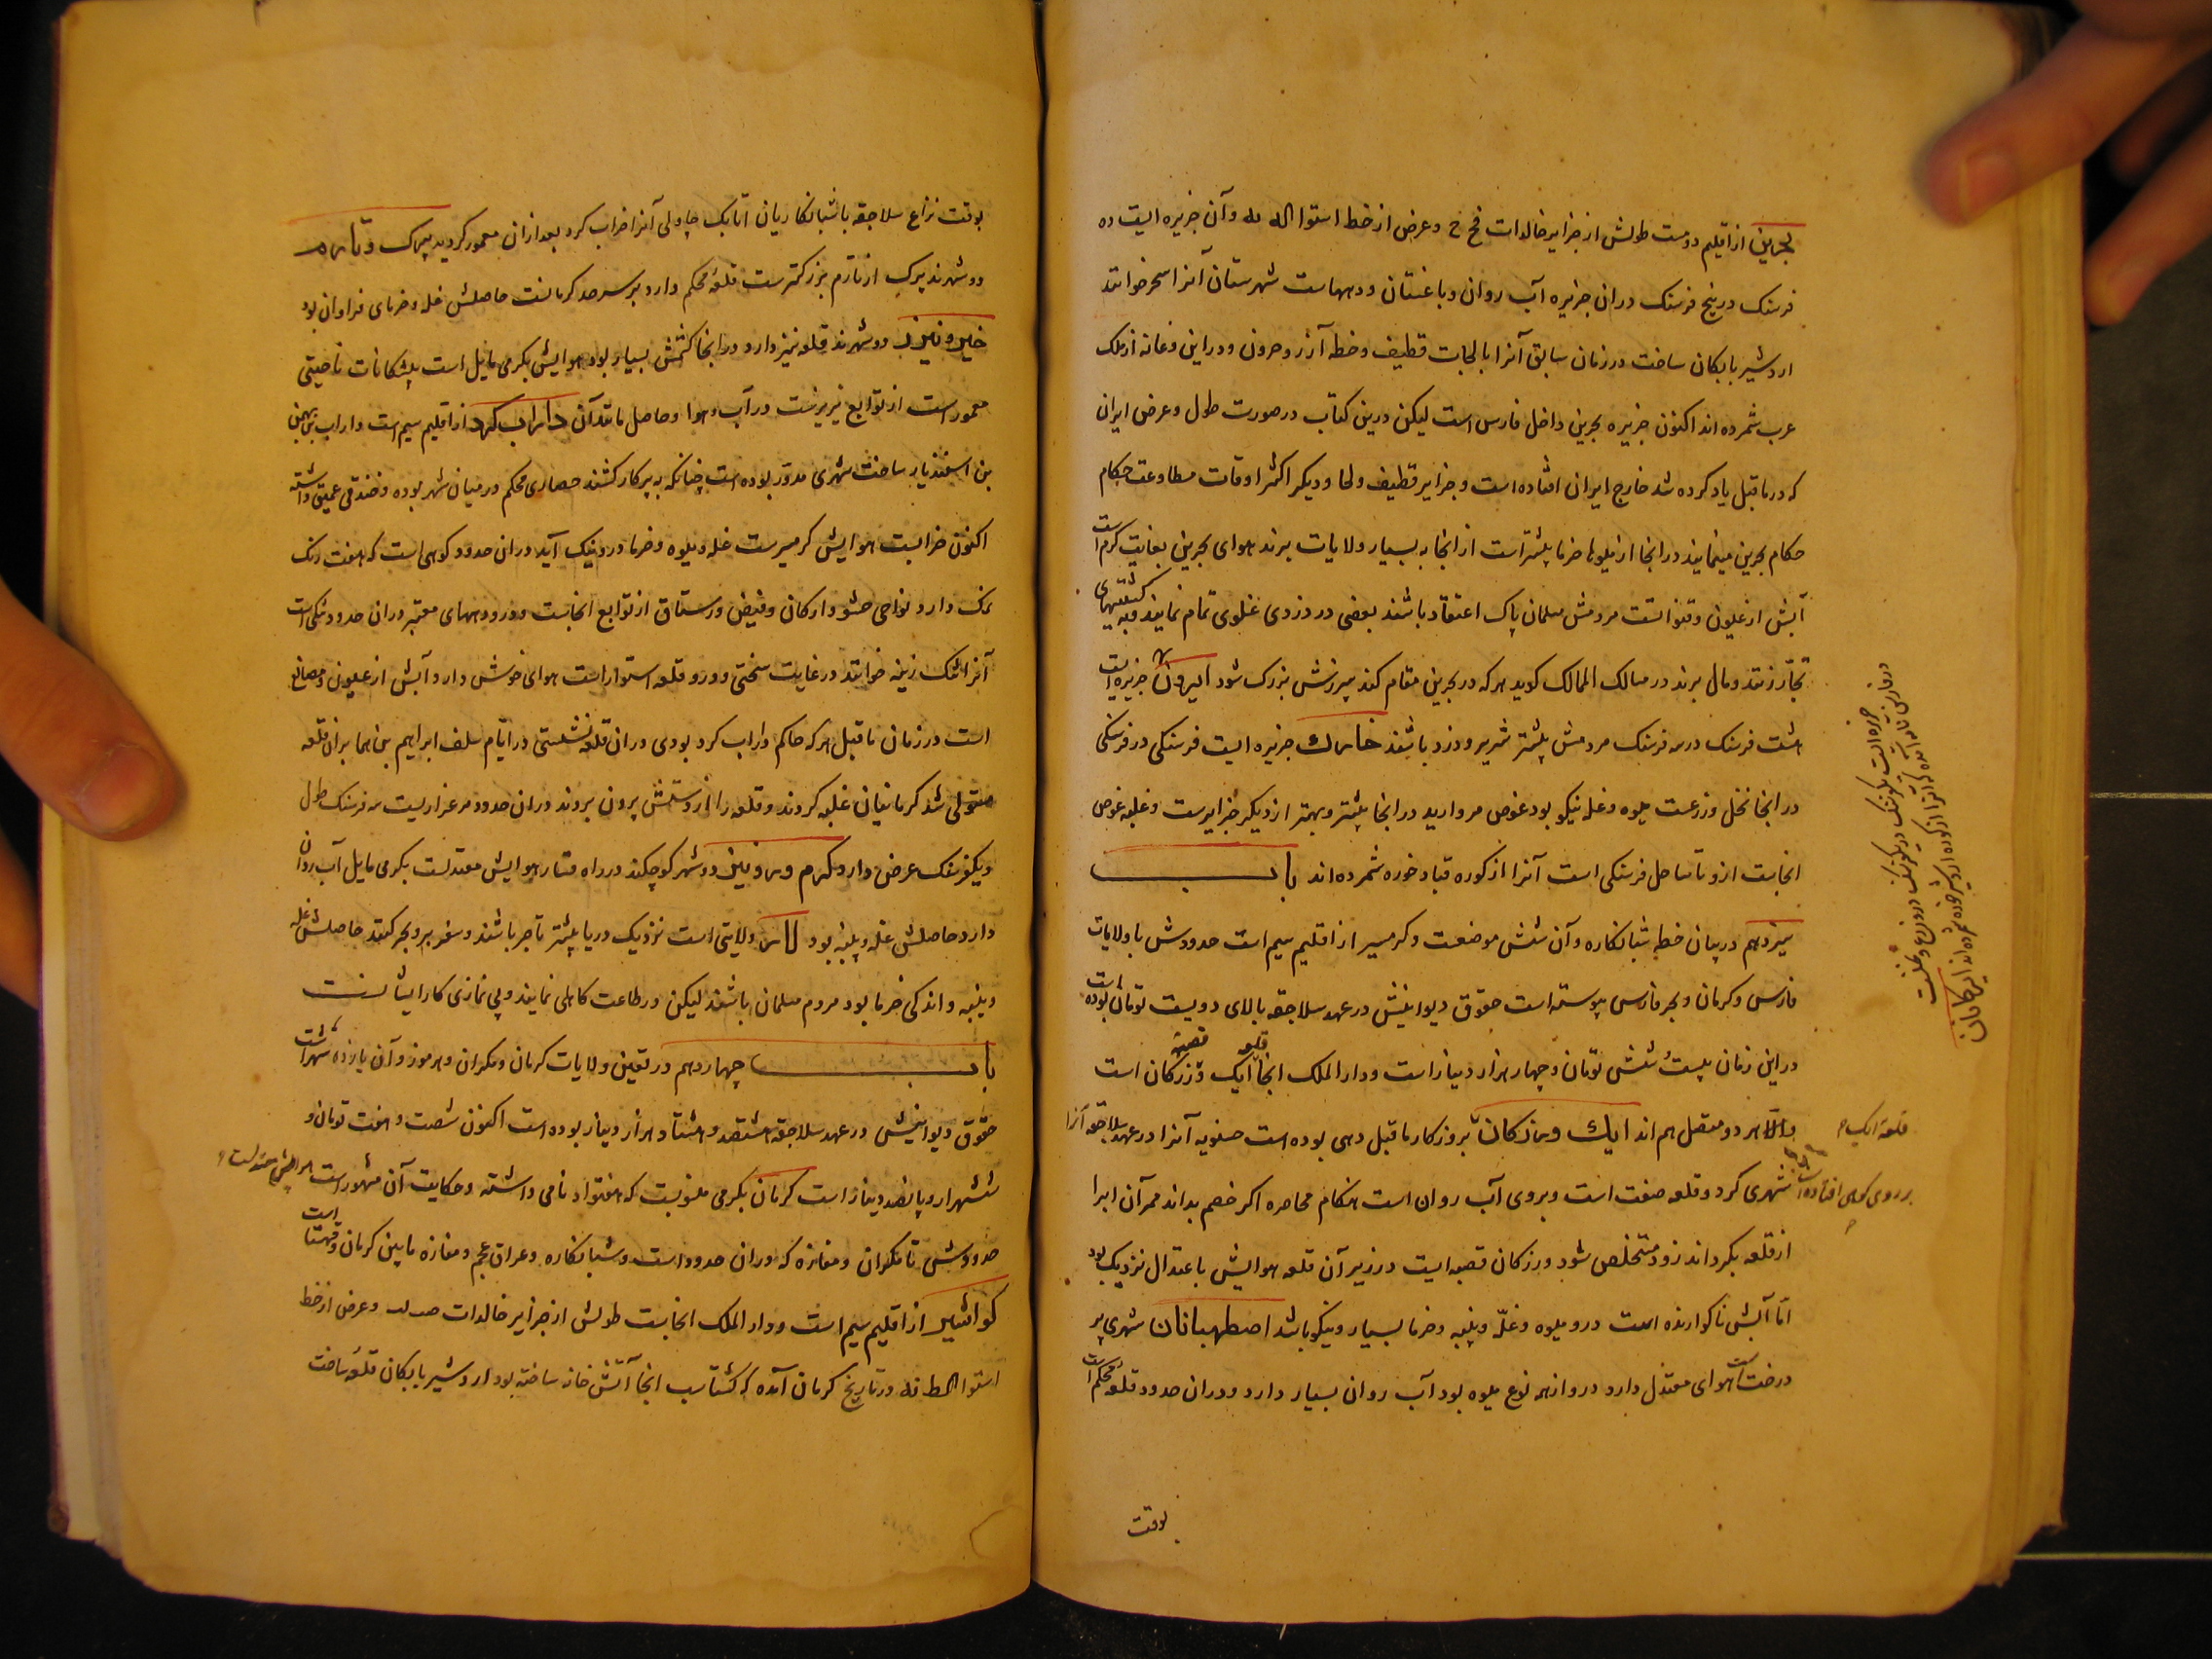 بحرین از اقلیم دومست طولش از جزایر خالدات فح ح و عرض از خط استوا الد له وآن جزیره ایست ده
فرسنک در پنج فرسنک دران جزیره آب روان و باغستان و دیهاست شهرستان آنرا سحر خوانند
اردشیر بابکان ساخت در زمان سابق آنرا با لجات قطیف و خطه آزر و حرون و در این و غانه از ملک
عرب شمرده اند اکنون جزیره بحرین داخل فارس است لیکن درین کتاب در صورت طول و عرض ایران
که در ماقبل یاد کرده شد خارج ایران افتاده است و جزایر قطیف و لحا و دیکر اکثر اوقات مطاوعت حکام
حکام بحرین مینمایند در انجا از میوها خرما بیشتر است از انجا به بسیار ولایات برند هوای بحرین بغایت کرم است
آبش از عیون و قنواتست مردمش مسلمان پاک اعتقاد باشند بعضی در دزدی غلوی تمام نمایند و به کشتیهای
تجار زنند و مال برند در مسالک الممالک کوید هرکه در بحرین مقام کند سپرزش بزرک شود ابرون جزیره ایست
هشت فرسنک در سه فرسنک مردمش بیشتر شریر و دزد باشند خارك جزیره ایست فرسنکی در فرسنکی
در انجا نخل و زرعست میوه و غله نیکو بود غوص مروارید در انجا بیشتر و بهتر از دیکر جزایرست و غلبه غوص
انجاست ازو تا ساحل فرسنکی است آنرا از کوره قباد خوره شمرده اند باب
سیزدهم در بیان خطه شبانکاره و آن شش موضعت و کرمسیر از اقلیم سیم است حدودش با ولایات
فارس و کرمان و بحر فارس پیوسته است حقوق دیوانیش در عهد سلاجقه بالای دویست تومان بوده است
در این زمان بیست شش تومان و چهار هزار دینار است و دار الملک انجا قلعه ایک و قصبه زرکان است
والا هر دو متصل هم اند ایك و زرکان بروزکار ماقبل دهی بوده است حسنویه آنرا در عهد سلاجقه آنرا
قلعه ایک م
شهری کرد و قلعه صفت است و بروی آب روان است هنکام محاصره اکر خصم بداند ممر آن ابرا
بر روی کوهی افتاده است
از قلعه بکرداند زود مستخلص شود و زرکان قصبه ایست در زیر آن قلعه هوایش باعتدال نزدیک بود
اما آبش ناکوارنده است درو میوه و غله و پنبه و خرما بسیار و نیکو باشد اصطهبانان شهری پر
درختست هوای معتدل دارد درو از هر نوع میوه بود آب روان بسیار دارد و دران حدود قلعه محکم است
جزیره ایست یکفرسنک در یکفرسنک درو زرع و نخلست
در فارس نامه آمده که آنرا از کوره اردشیر خوره شمرده اند ابرکافان
بوقت
بوقت نزاع سلاجقه با شبانکاریان اتابک چاولی آنرا خراب کرد بعد ازان معمور کردید برك و تارم
دو شهرند برک از تارم بزرکترست قلعه محکم دارد بر سرحد کرمانست حاصلش غله و خرمای فراوان بود
خیره و نیریز دو شهرند قلعه نیز دارد در انجا کشمش بسیار بود هوایش بکرمی مایل است بشکانات ناحیتی
معمور است از توابع نیریزست در آب و هوا و حاصل مانند آن داراب کرد از اقلیم سیم است داراب بن بهمن
بن اسفندیار ساخت شهری مدور بوده است چنانکه به پرکار کشند حصاری محکم در میان شهر بوده و خندقی عمیق داشته
اکنون خرابست هوایش کرمسیرست غله و میوه و خرما درو نیک آید دران حدود کوهی است که هفت رنک
نمک دارد نواحی حشو و دارکان و فیض و رستاق از توابع انجاست و درو دیههای معتبر دران حدود تنکی است
آنرا تنک زینه خوانند در غایت سختی و درو قلعه استوار است هوای خوش دارد آبش از عیون و مصانع
است در زمان ماقبل هرکه حاکم داراب کرد بودی دران قلعه نشستی در ایام سلف ابراهیم بن هما بران قلعه
متولی شد کرمانیان غلبه کردند و قلعه را از دستش بیرون بردند دران حدود مرغزاریست سه فرسنک طول
و یکفرسنک عرض دارد کرم و روبنز دو شهر کوچکند در راه فسا هوایش معتدلست بکرمی مایل آب روان
دارد حاصلش غله و پنبه بود لار ولایتی است نزدیک دریا بیشتر تاجر باشند و سفر بر و بحر کنند حاصلش غله
و پنبه و اندکی خرما بود مردم مسلمان باشند لیکن در طاعت کاهلی نمایند و بی نمازی کار ایشانست
باب چهاردهم در تعین ولایات کرمان و مکران و هرموز و آن یازده شهر است
حقوق دیوانیش در عهد سلاجقه هشتصد و هشتاد هزار دینار بوده است اکنون شصت و هفت تومان و
ششهزار و پانصد دینار است کرمان بکرمی منسوبست که هفتواد نامی داشته و حکایت آن مشهور است هوایش معتدلست
حدودش تا مکران و مفازه که دران حدود است و شبانکاره و عراق عجم و مفازه مابین کرمان و قهستان است
کواشیر از اقلیم سیم است و دار الملک انجاست طولش از جزایر خالدات صد لد و عرض از خط
استوا الط نه در تاریخ کرمان آمده که کشتاسب انجا آتش خانه ساخته بود اردشیر بابکان قلعه ساخت